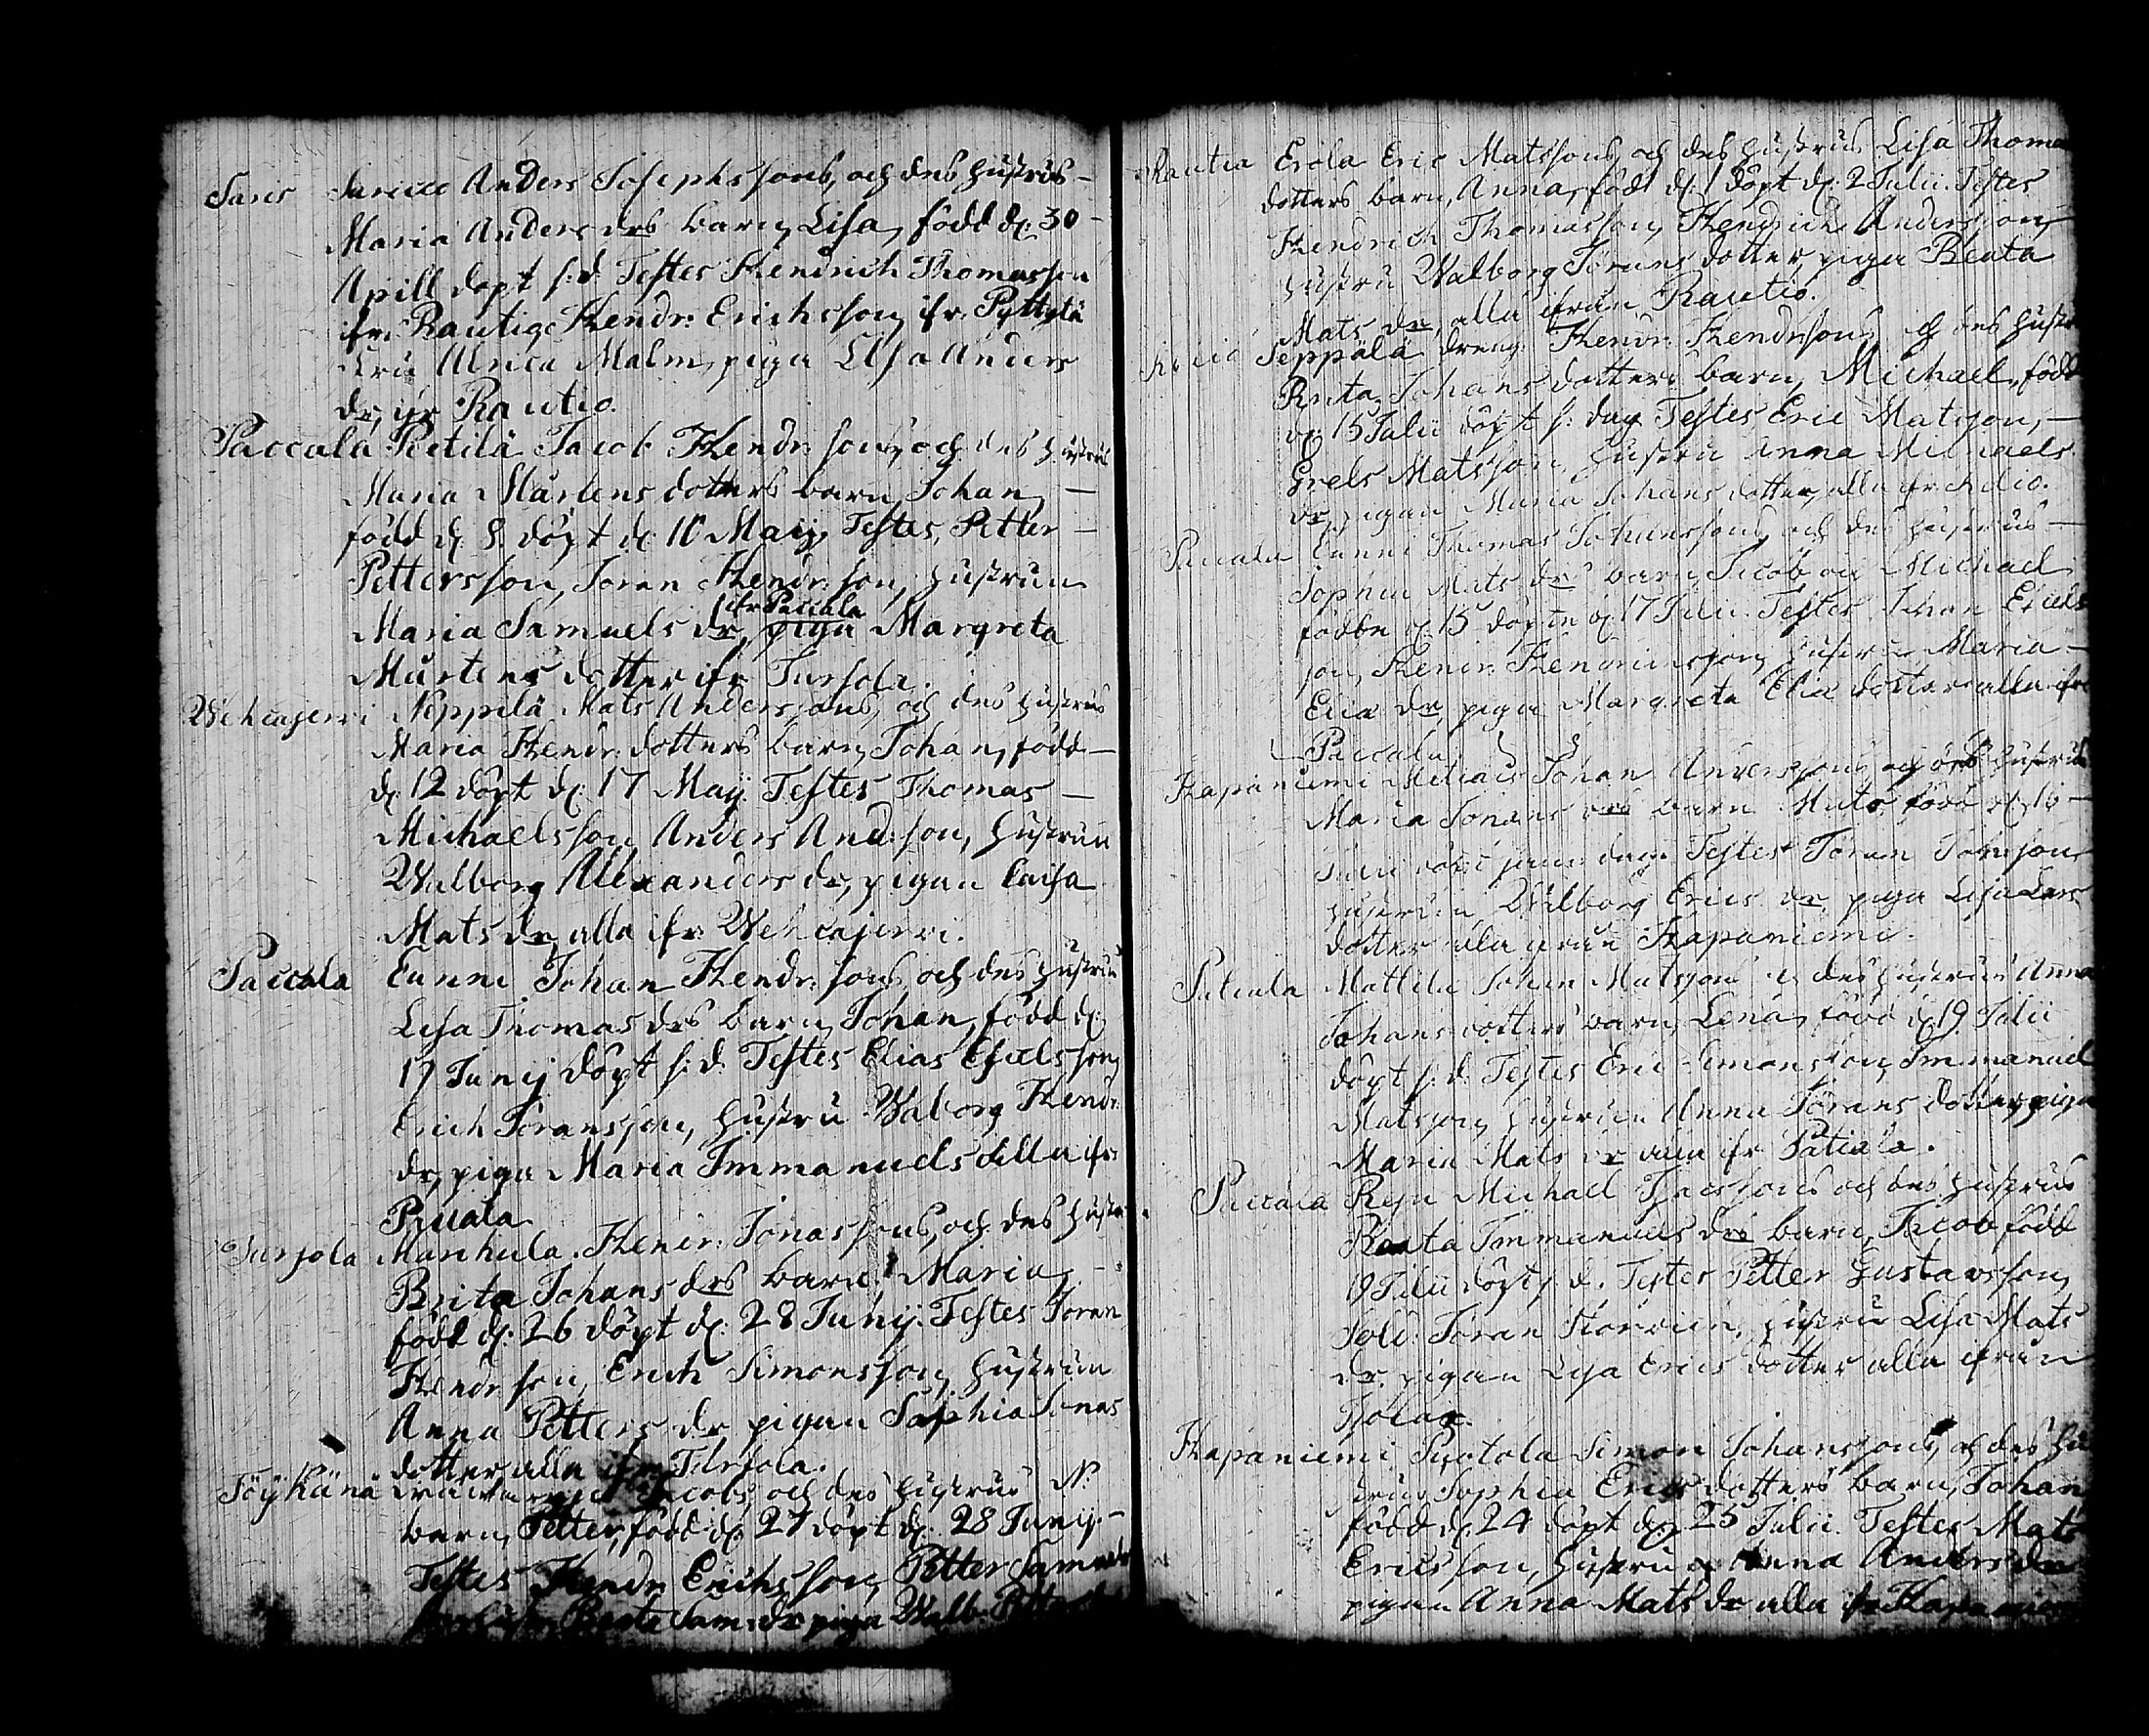 Saris Anders Josephssons, och des hustrus
Maria Anders drs barn, Lisa, född d: 30
Apill döpt s: d. Testes Hendrich Thomasson
ifr. Rautio, Hendr: Erichsson, ifr. Pyttylä
Ulrica Malm, piga Lisa Anders
dr, ifr Rautio.
Paccala Pietilä Jacob Hendr: sons, och des hustrus
Maria Mårtens dotters barn, Johan,
född d: 8 döpt d: 10 Maij, Testes, Petter
Pettersson, Jöran Hendr: son, hustrun
ifr Paccala
Maria Samuels dr, piga Margreta
Mårtens dotter ifr Tursola.
Wehcajerwi Neppilä Mats Anderssons, och des hustrus
Maria Hendr: dotters barn, Johan, född
d: 12 döpt d: 17 Maij. Testes Thomas
Michaelsson, Anders And: son, hustrun
Walborg Alexanders dr, pigan Caisa
Mats dr, alla ifr. Wehcajerwi.
Paccala Eunni Johan Hendr: sons, och des hustrus
Lisa Thomas drs barn, Johan, född d:
17 Junij döpt s: d. Testes Elias Eskelsson,
Erich Jöransson, hustru Walborg Hendr:
dr, piga Maria Immanuels alla ifr
Paccala
Tursola Manhula Hendr: Jonassons, och des hustrus
Brita Johans drs barn, Maria,
född d: 26 döpt d: 28 Junij. Testes Jöran
Hendr: son, Erich Simonsson, hustrun
Anna Petters dr, pigan Sophia Jonas
dotter, alla ifr. Tursola.
Töykänä Jacobs, och des hustrus N.
barn, Petter, född d: 27 döpt d: 28 Junij.
Testes Hendr: Erichsson, Petter Samuels
Beata Sam: dr piga Walb: Petters
Rautio Erola Eric Matssons, och des hustrus Lisa Thomas
dotters barn, Anna, född d: 1 döpt d: 2 Julii. Testes
Hendrich Thomasson, Hendrich Andersson,
hustru Walborg Jörans dotter, piga Beata
Mats dr, alla ifrån Rautio.
Seppälä dräng Hendr: Hendrssons, och des hustrus
Brita Johans dotters barn, Michael, född
d: 15 Julii döpt s: dag Testes Eric Matsson,
Grels Matsson, hustru Anna Michaels
dr, pigan Maria Johans dotter, alla ifr.
Paccala Eunni Thomas Johanssons, och des hustrus
Sophia Mats drs barn, Jacob och Michael
födde d: 15 döpte d: 17 Julii. Testes Johan Eskels
son, Hendr: Hendricsson, hustru Maria
Elia dr, piga Margreta Elia dotter alla ifr
Paccala
Hapaniemi Johan Anderssons, och des hustrus
Maria Johans drs barn Mats född d:
Julii döpt samma dag. Testes Jöran Jöransson
hustrun Wilborg Erics dr, piga Lisa Lars
dotter alla ifrån Hapaniemi.
Mattila Johan Matssons och des hustrus Anna
Johans dotters barn, Lena, född d: 19 Julii
döpt s: d. Testes Eric Simonsson, Immanuel
Matsson, hustrun Anna Jörans dotter, piga
Maria Mats dr alla ifr
Paccala Michael Isacssons och des hustrus
Beata Immanuels drs barn, Jacob född
19 Julii döpt s: d. Testes Petter Gustavsson,
Sold: Jöran hustru Lisa Mats
dr, pigan Lisa Erics dotter alla ifrån
Hapaniemi Puotola Simon Johanssons, och des hu
strus Sophia Erics dotters barn, Johan
född d: 24 döpt d: 25 Julii. Testes Mats
Ericsson, hustrun Anna Anders dr
pigan Anna Mats dr alla ifr Hapaniemi